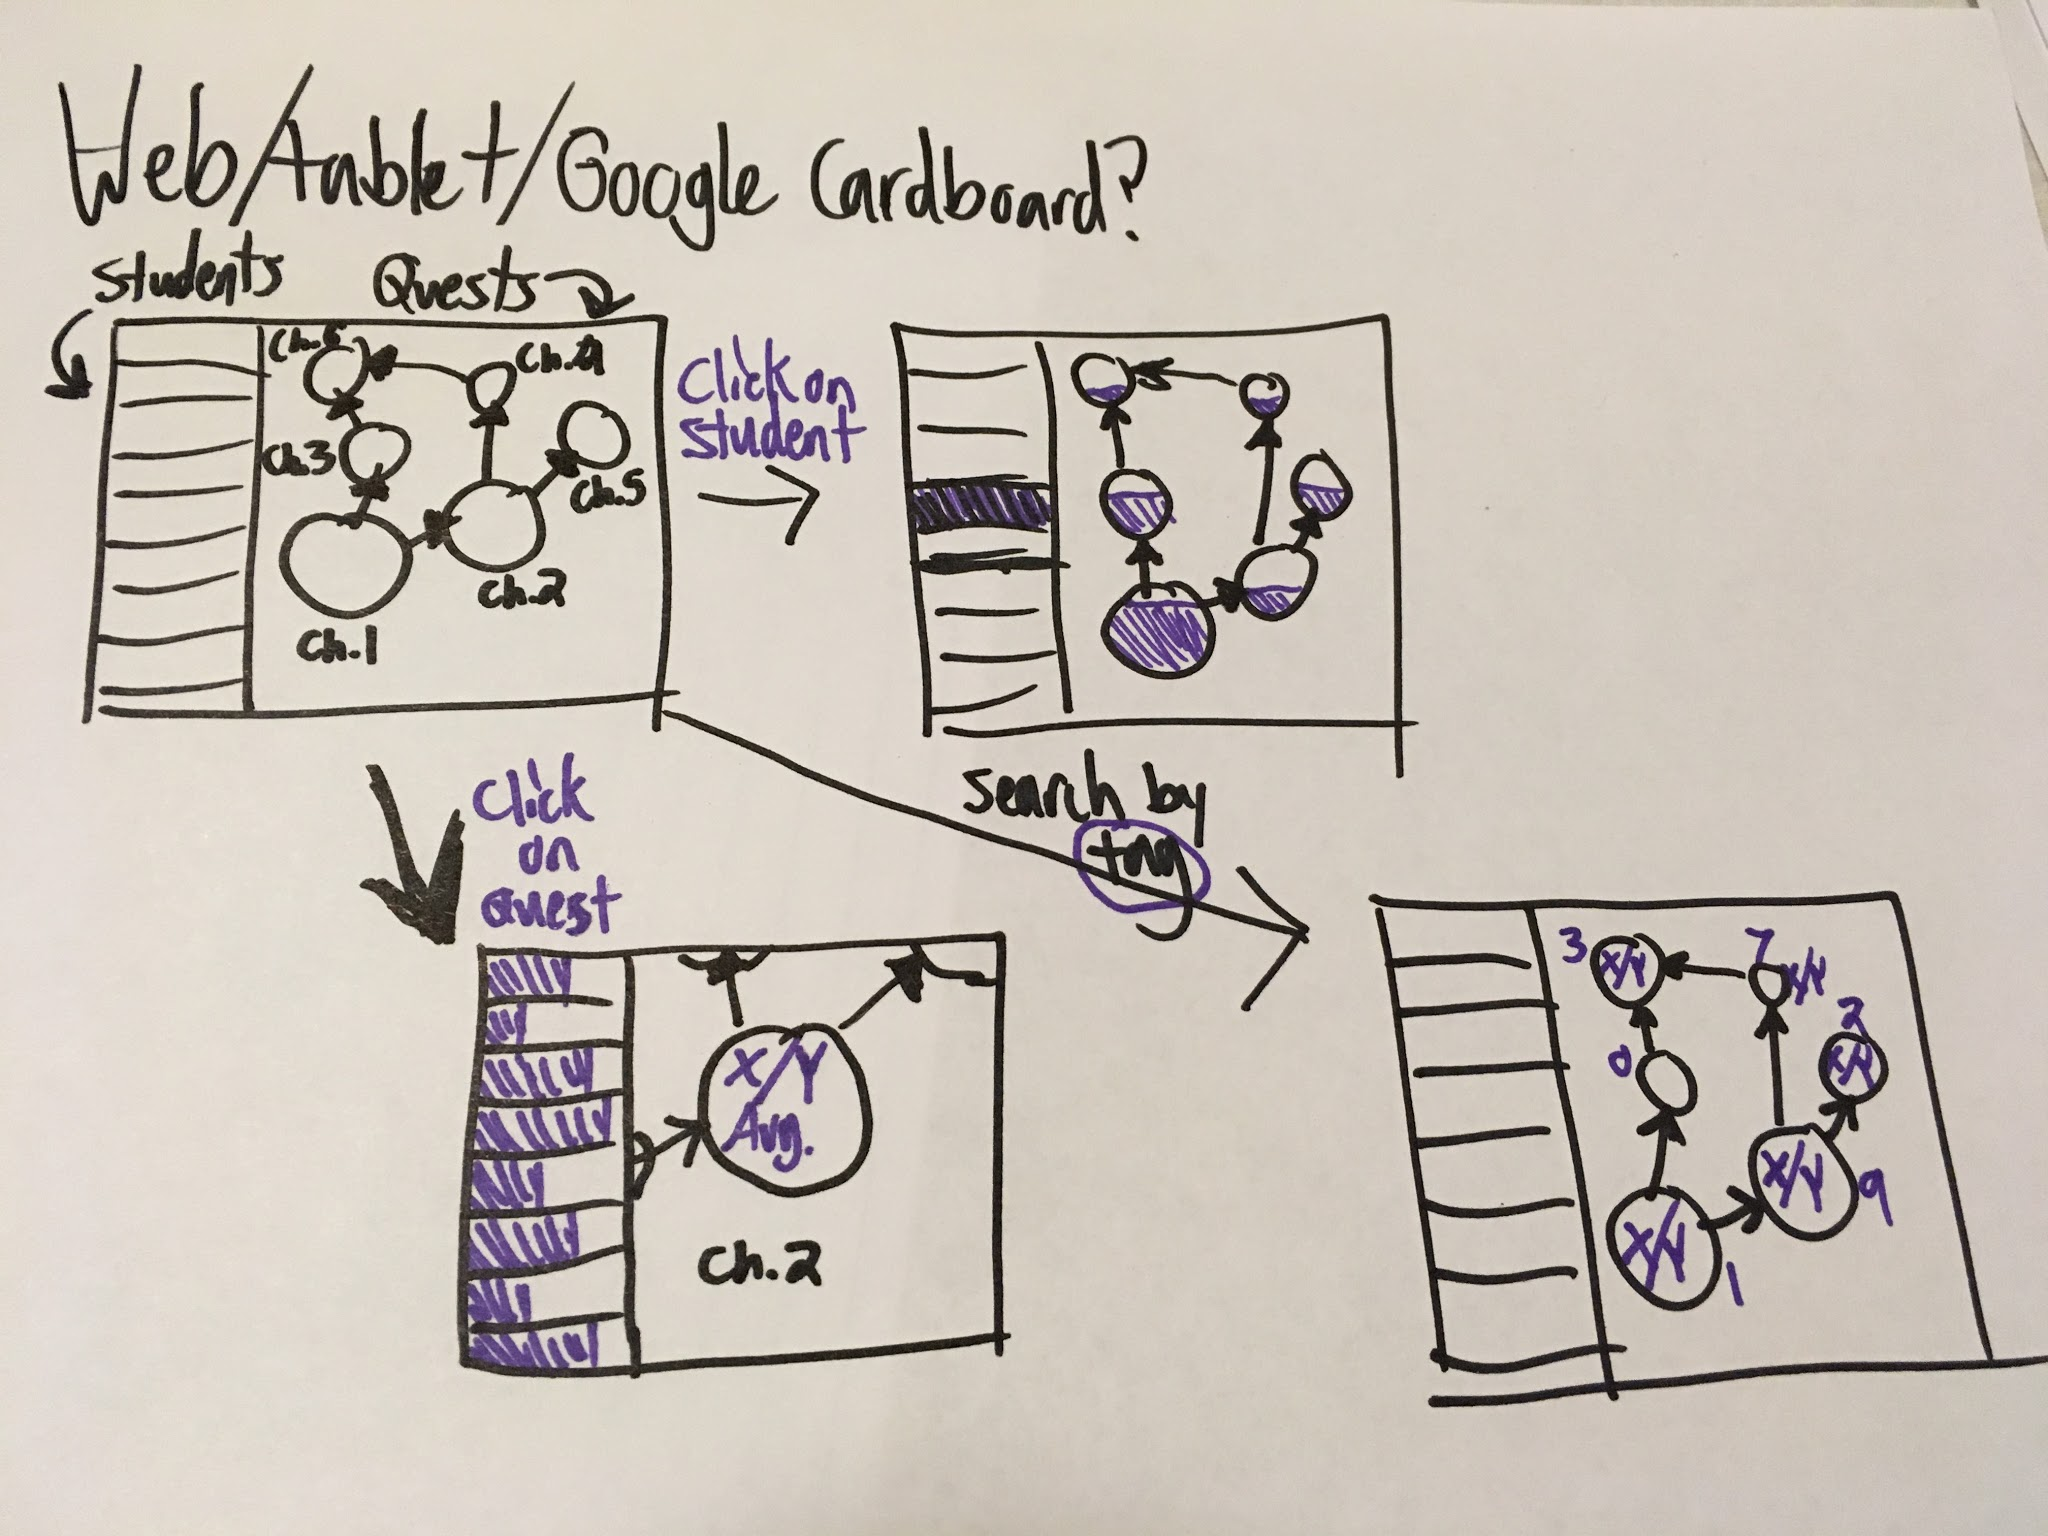 Web/tablet/Google Cardboard?
Students
Quests
Ch.6
Ch.4
Ch.3
Ch.5
Ch.2
Ch.1
Click on
student
Click
on
Quest
Search by
tag
X/Y
Avg.
Ch.2
3
X/Y
7
X/Y
2
X/Y
0
X/Y
9
X/Y
1